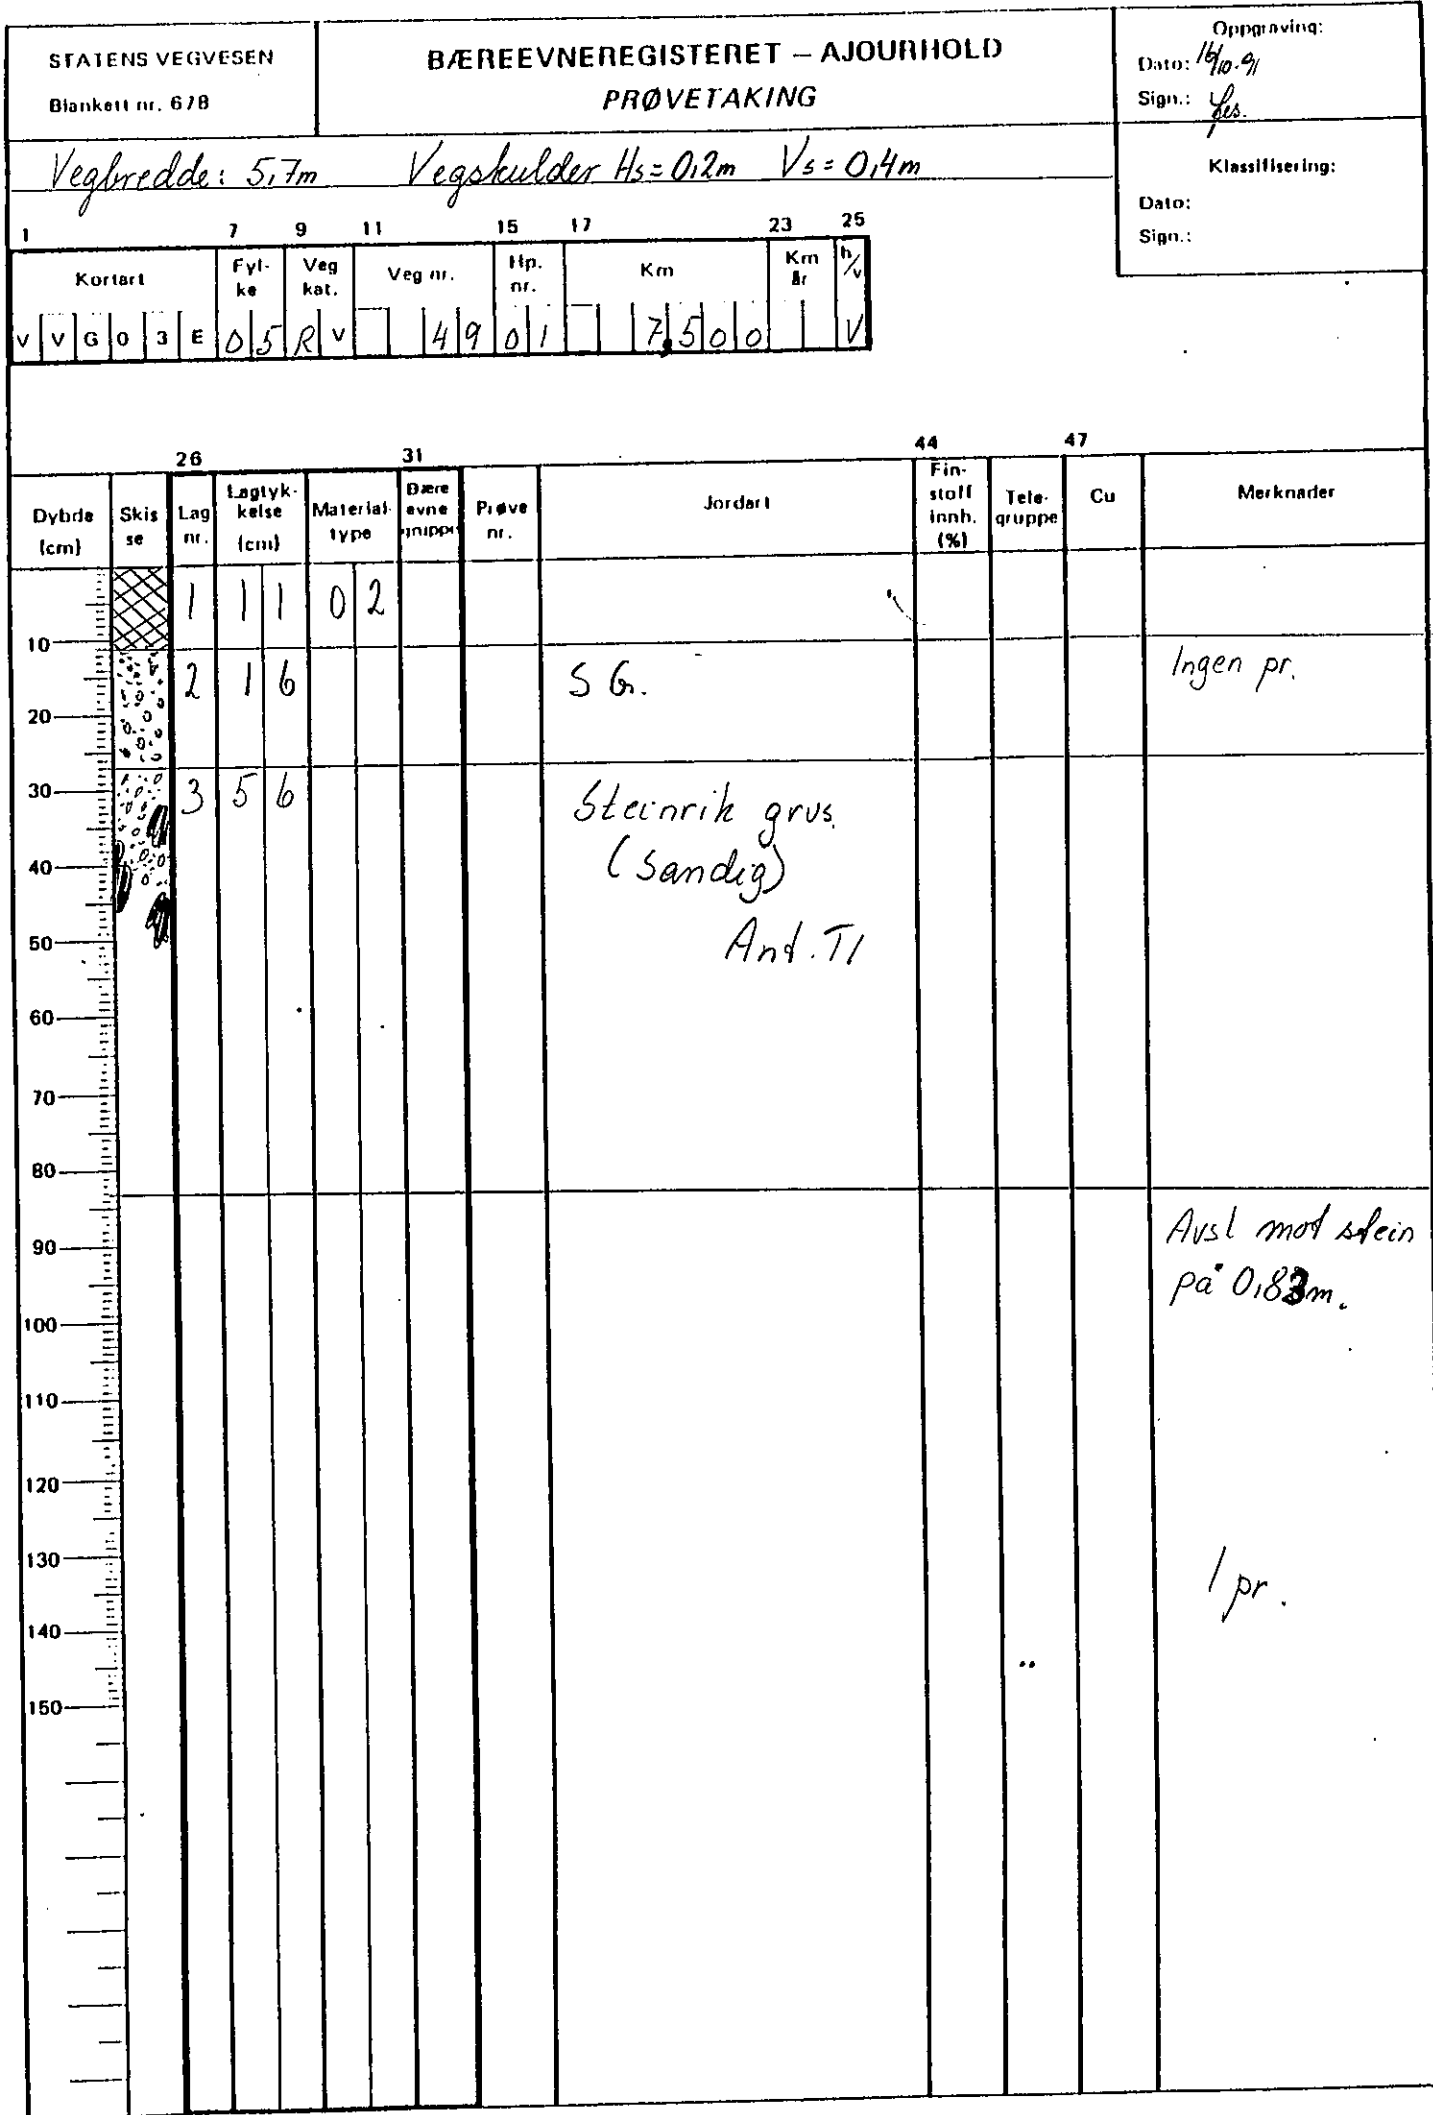 STATENS VEGVESEN
Blankett nr. 678
BÆREEVNEREGISTERET – AJOURHOLD
PRØVETAKING
Oppgraving:
Dato: 16/10-91
Sign.:
Klassifisering:
Dato:
Sign.:
Vegbredde: 5,7m Vegskulder Hs=0,2m Vs=0,4m
1 7 9 11 15 17 23 25
Kortart Fyl-ke Veg kat. Veg nr. Hp. nr. Km Km år h/v
V V G 0 3 E 0 5 R V 4 9 0 1 7,5 0 0 V
26 31 44 47
Dybde (cm) Skisse Lag nr. Lagtyk-kelse (cm) Material-type Bære evne gruppe Prøve nr. Jordart Fin-stoff innh. (%) Tele-gruppe Cu Merknader
1 1 1 0 2
10
2 1 6 S G. Ingen pr.
20
30
3 5 6 Steinrik grus.
(Sandig)
40
Ant. T1
50
60
70
80
Avsl mot stein
90
på 0,83m.
100
110
120
130
1 pr.
140
150